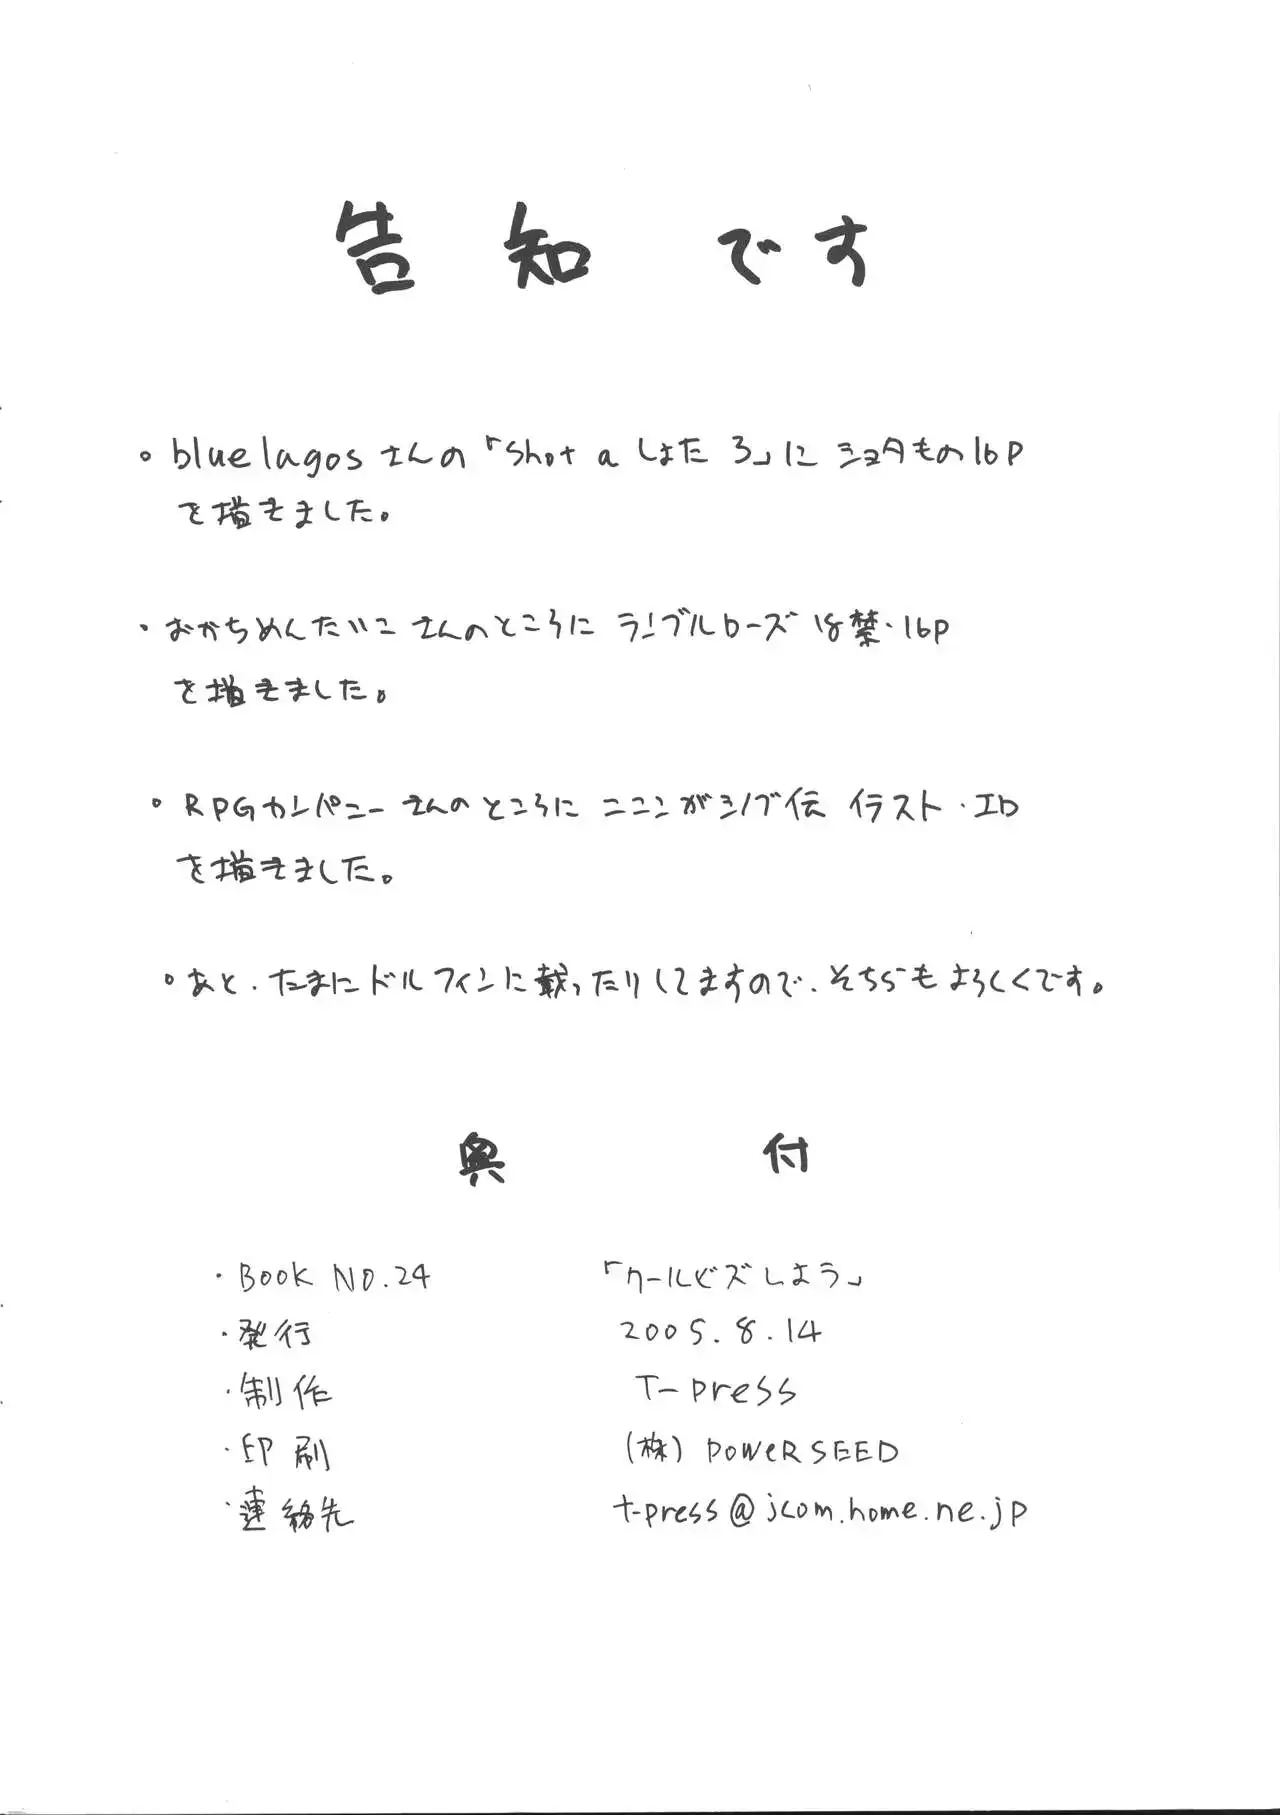 告知です
。bluelagosさんの「Shot a しょた 3」にショタもの16P
を描きました。
・おかちめんたいこさんのところにランブルローズ 18禁・16p
を描きました。
。RPGカンパニーさんのところにニニンがシノブ伝 イラスト・エロ
を描きました。
。あと、たまにドルフィンに載ったりしてますので、そちらもよろしくです。
奥付
・BOOK NO.24 「クールビズしよう」
・発行 2005.8.14
・制作 T-press
・印刷 (株) POWERSEED
・連絡先 t-press@jcom.home.ne.jp